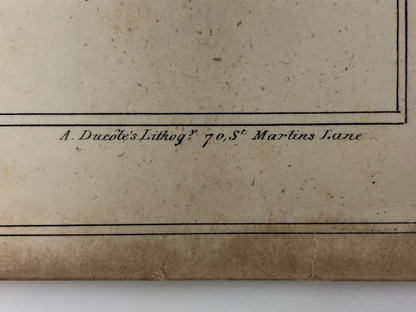 A. Ducôte's Lithogr. 70, St Martins Lane